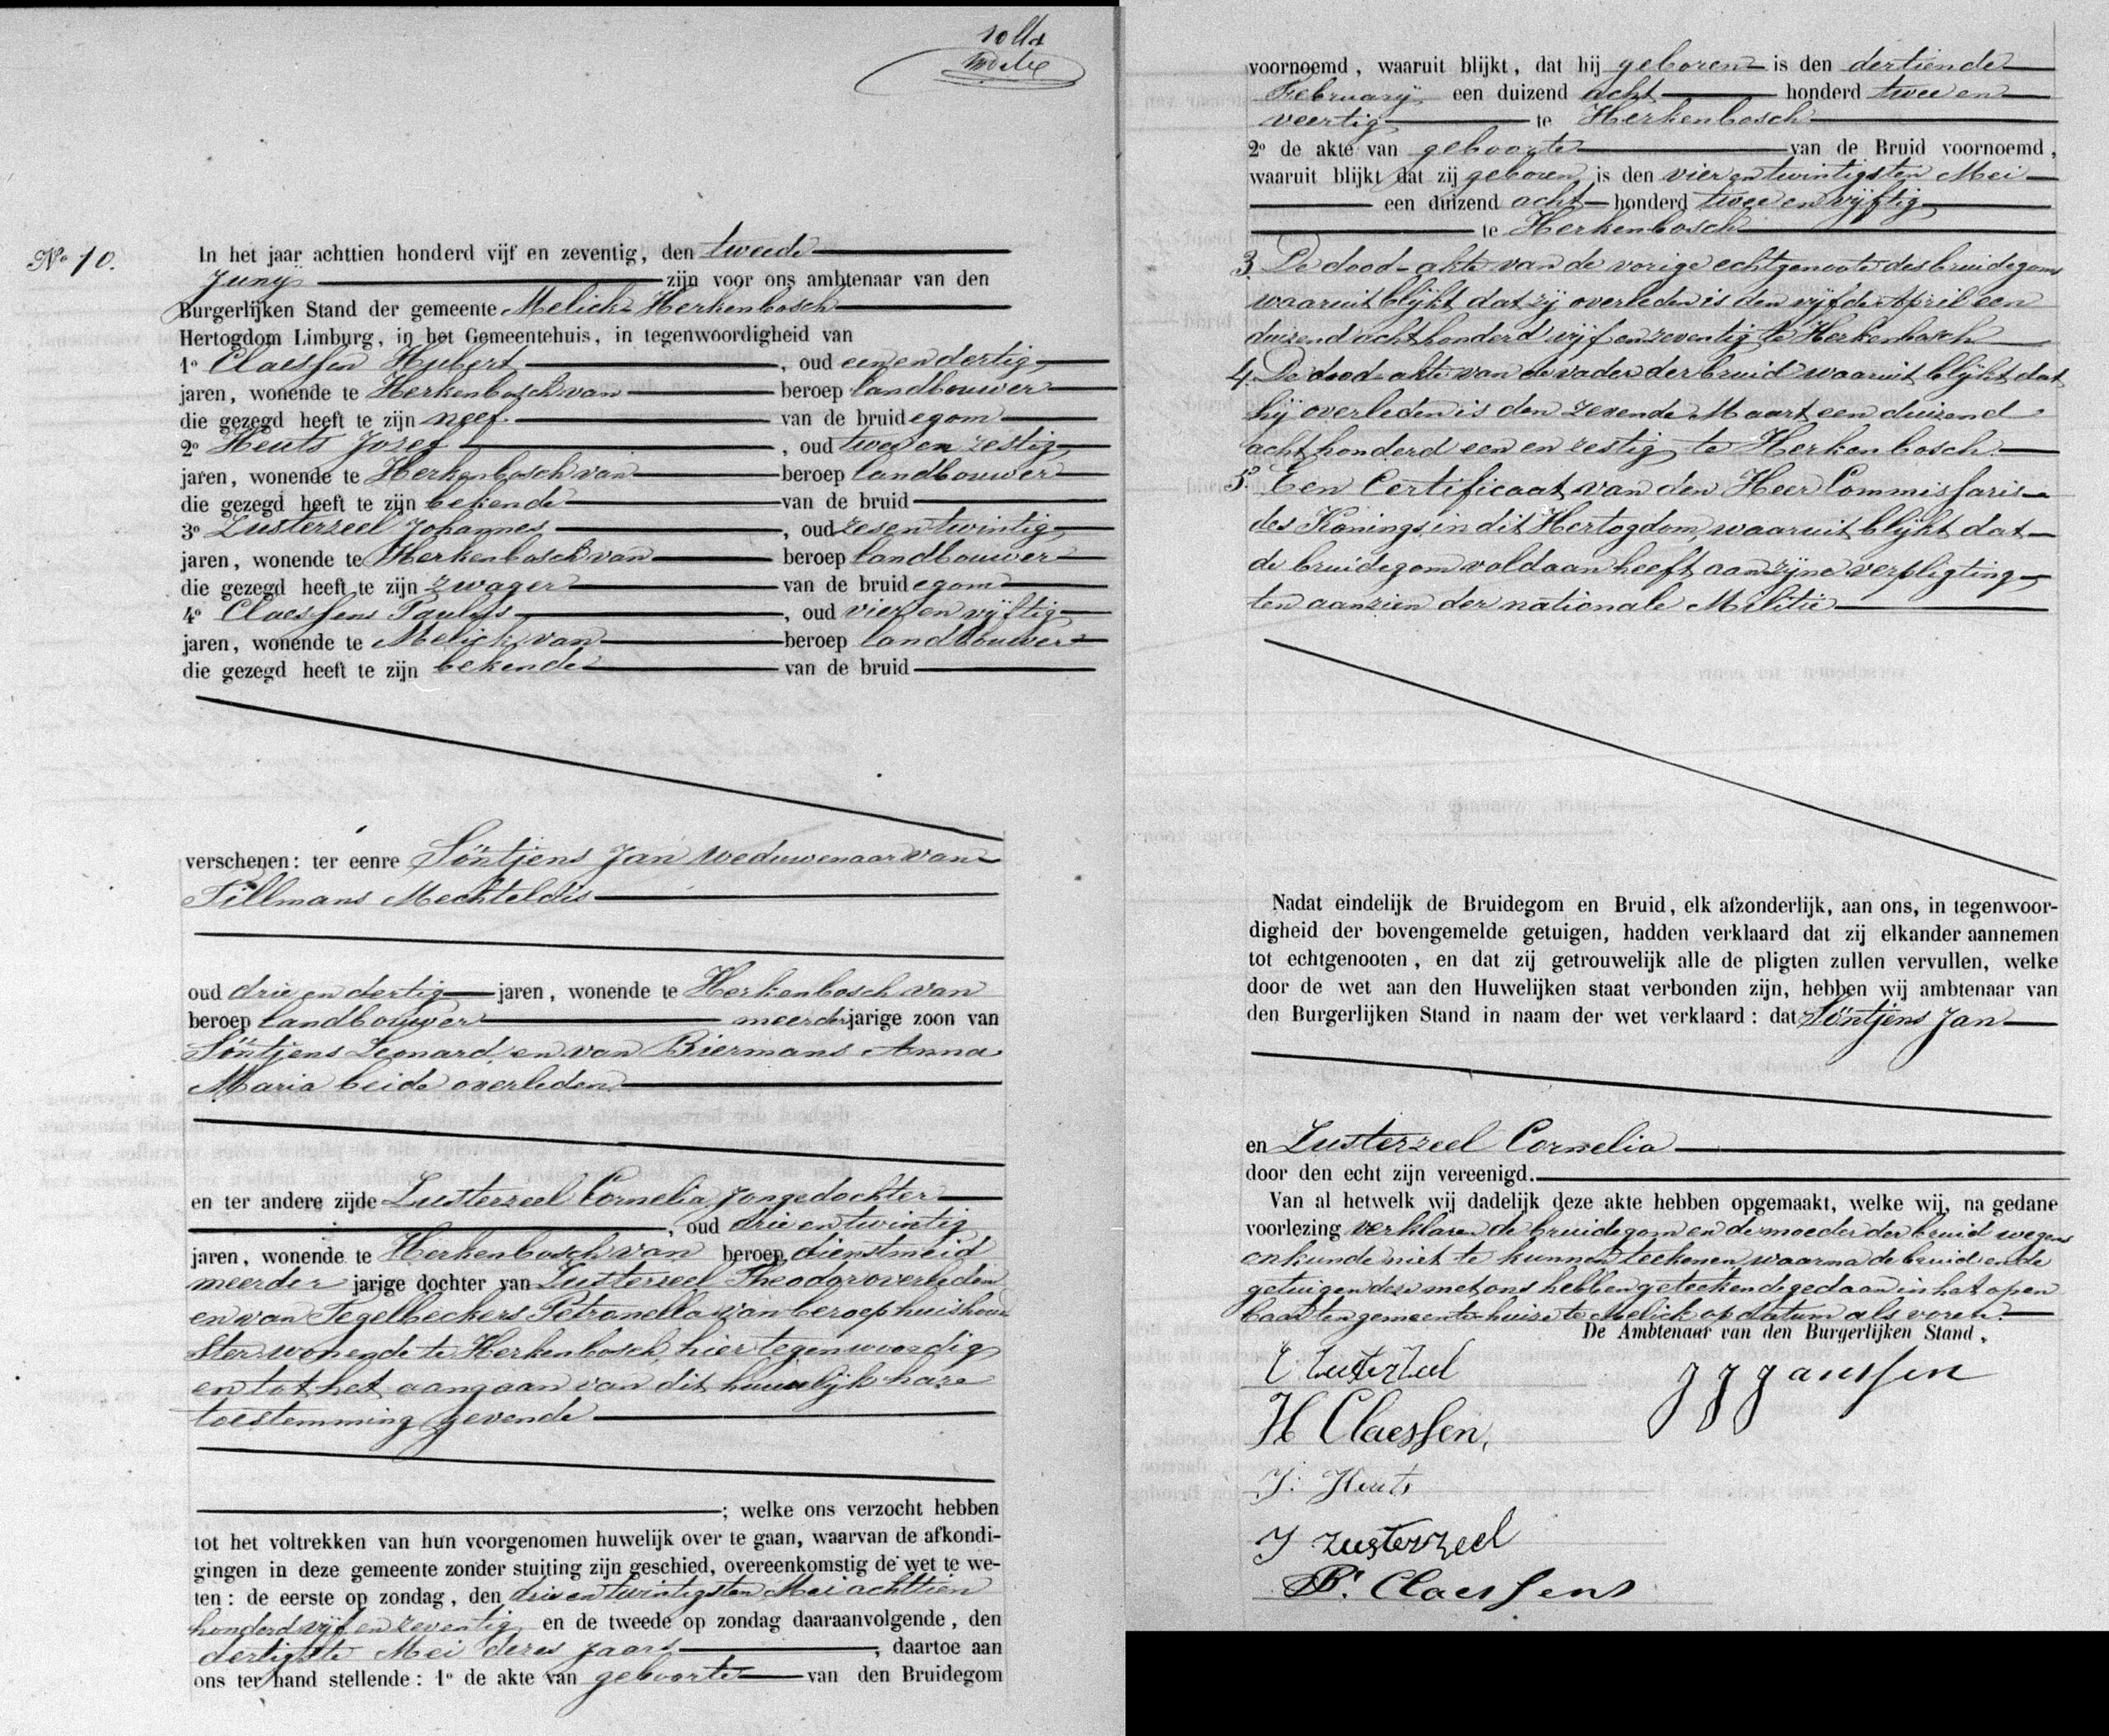 No 10.
In het jaar achttien honderd vijf en zeventig, den tweede
Junij zijn voor ons ambtenaar van den
Burgerlijken Stand der gemeente Melick & Herkenbosch
Hertogdom Limburg, in het Gemeentehuis, in tegenwoordigheid van
1o Claessen Hubert, oud een en dertig
jaren, wonende te Herkenbosch van beroep landbouwer
die gezegd heeft te zijn neef van de bruidegom
2o Heuts Jozef, oud twee en zestig
jaren, wonende te Herkenbosch van beroep landbouwer
die gezegd heeft te zijn bekende van de bruid
3o Zusterzeel Johannes, oud zes en twintig
jaren, wonende te Herkenbosch van beroep landbouwer
die gezegd heeft te zijn zwager van de bruidegom
4o Claessens Paulus, oud vier en vijftig
jaren, wonende te Melick van beroep landbouwer
die gezegd heeft te zijn bekende van de bruid
verschenen: ter eenre Söntjens Jan weduwenaar van
Tillmans Mechteldis
oud drie en dertig jaren, wonende te Herkenbosch van
beroep landbouwer meerderjarige zoon van
Söntjens Leonard en van Biermans Anna
Maria beide overleden
en ter andere zijde Zusterzeel Cornelia Jongedochter
, oud drie en twintig
jaren, wonende te Herkenbosch van beroep dienstmeid
meerder jarige dochter van Zusterzeel Theodor overleden
en van Tegelbeckers Petronella van beroep huishoud
ster wonende te Herkenbosch, hier tegenwoordig
en tot het aangaan van dit huwelijk hare
toestemming gevende
; welke ons verzocht hebben
tot het voltrekken van hun voorgenomen huwelijk over te gaan, waarvan de afkondi-
gingen in deze gemeente zonder stuiting zijn geschied, overeenkomstig de wet te we-
ten: de eerste op zondag, den drie en twintigsten Mei achttien
honderd vijf en zeventig en de tweede op zondag daaraanvolgende, den
dertigste Mei dezes jaars, daartoe aan
ons ter hand stellende: 1o de akte van geboorte van den Bruidegom
voornoemd, waaruit blijkt, dat hij geboren is den dertiende
February een duizend acht honderd twee en
veertig te Herkenbosch
2o de akte van geboorte van de Bruid voornoemd,
waaruit blijkt dat zij geboren is den vier en twintigsten Mei
een duizend acht honderd twee en vijftig
te Herkenbosch
3. De dood-akte van de vorige echtgenoote des bruidegoms
waaruit blijkt dat zij overleden is den vijfden April een
duizend acht honderd vijf en zeventig te Herkenbosch
4. De dood-akte van de vader der bruid waaruit blijkt dat
hij overleden is den zevende Maart een duizend
acht honderd een en zestig te Herkenbosch.
5. Een Certificaat van den Heer Commissaris
des Konings in dit Hertogdom, waaruit blijkt dat
de bruidegom voldaan heeft aan zijne verpligting
ten aanzien der nationale Militie
Nadat eindelijk de Bruidegom en Bruid, elk afzonderlijk, aan ons, in tegenwoor-
digheid der bovengemelde getuigen, hadden verklaard dat zij elkander aannemen
tot echtgenooten, en dat zij getrouwelijk alle de pligten zullen vervullen, welke
door de wet aan den Huwelijken staat verbonden zijn, hebben wij ambtenaar van
den Burgerlijken Stand in naam der wet verklaard: dat Söntjens Jan
en Zusterzeel Cornelia
door den echt zijn vereenigd.
Van al hetwelk wij dadelijk deze akte hebben opgemaakt, welke wij, na gedane
voorlezing verklaren de bruidegom en de moeder der bruid wegens
onkunde niet te kunnen teekenen waarna de bruid en de
getuigen deze met ons hebben geteekend gedaan in het open
baar ten gemeente-huise te Melick op datum als voren.
De Ambtenaar van den Burgerlijken Stand,
C Zusterzeel
J J Janssen
H Claessen,
J. Heuts
J Zusterzeel
P. Claessens